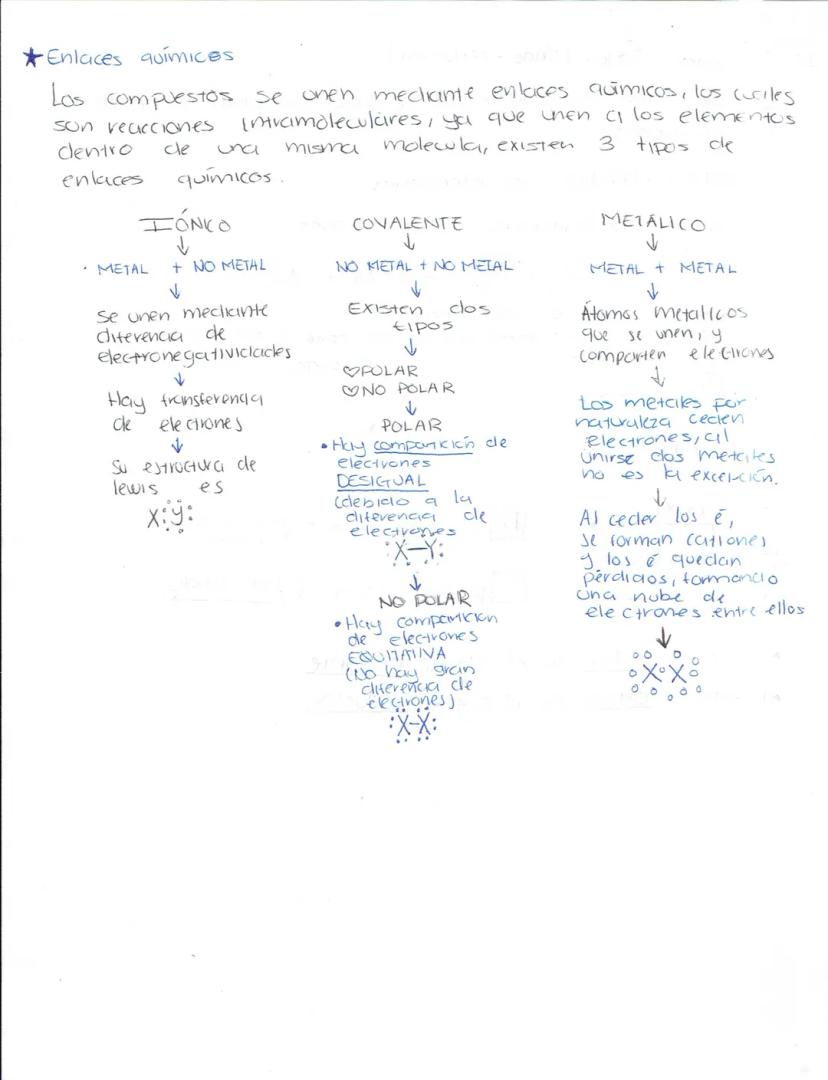 ★ Enlaces químicos
Los compuestos se unen mediante enlaces químicos, los cuales
son reacciones intramoleculares, ya que unen a los elementos
dentro de una misma molecula, existen 3 tipos de
enlaces químicos.
IÓNICO
↓
• METAL + NO METAL
↓
Se unen mediante
diferencia de
electronegatividades
↓
Hay transferencia
de electrones
↓
Su estructura de
lewis es
X:Y:
COVALENTE
↓
NO METAL + NO METAL
↓
Existen dos
tipos
↓
♡POLAR
♡NO POLAR
↓
POLAR
• Hay compartición de
electrones
DESIGUAL
(debido a la
diferencia de
electrones
:X—Y:
↓
NO POLAR
• Hay compartición
de electrones
EQUITATIVA
(No hay gran
diferencia de
electrones)
:X-X:
METÁLICO
↓
METAL + METAL
↓
Átomos metalicos
que se unen, y
comparten electrones
↓
Los metales por
naturaleza ceden
electrones, al
unirse dos metales
no es la excepción.
↓
Al ceder los é,
se forman cationes
y los é quedan
pérdidos, formando
una nube de
electrones entre ellos
↓
X X